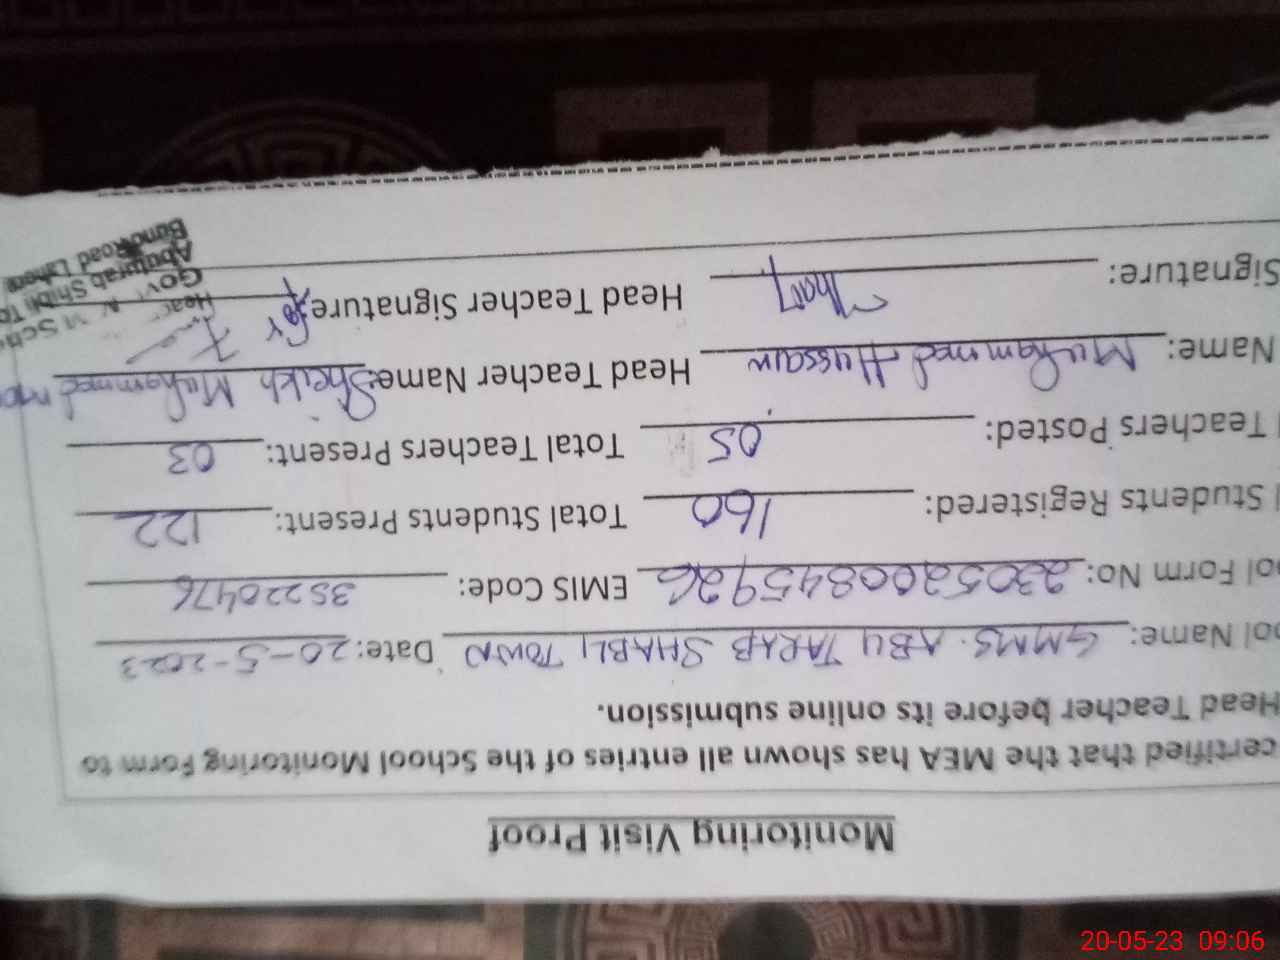 Monitoring Visit Proof
certified that the MEA has shown all entries of the School Monitoring Form to
Head Teacher before its online submission.
ool Name: GMMS. ABU TARAB SHABLI TOWN Date: 20-5-2023
ol Form No: 2305200845926 EMIS Code: 35220476
l Students Registered: 160 Total Students Present: 122
l Teachers Posted: 05 Total Teachers Present: 03
Name: Muhammad Hussain Head Teacher Name: Sheikh Muhammad
Signature: Head Teacher Signature: For
Hea
Gov M Sch
Abuturab Shibli To
Bund Road Lahore
20-05-23 09:06